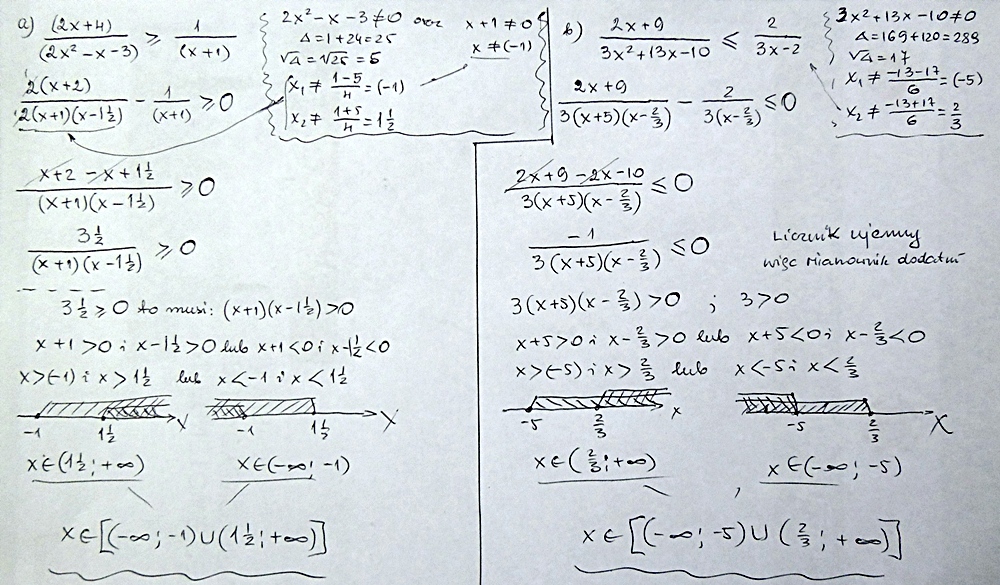 a) (2x+4)/(2x²-x-3) ⩾ 1/(x+1)
2x²-x-3≠0 oraz x+1≠0
Δ=1+24=25
x≠(-1)
√Δ=√25=5
x₁ ≠ (1-5)/4 = (-1)
x₂ ≠ (1+5)/4 = 1½
2(x+2)/(2(x+1)(x-1½)) - 1/(x+1) ⩾ 0
(x+2-x+1½)/((x+1)(x-1½)) ⩾ 0
3½/((x+1)(x-1½)) ⩾ 0
3½ ⩾ 0 to musi: (x+1)(x-1½)>0
x+1>0 i x-1½>0 lub x+1<0 i x-1½<0
x>(-1) i x>1½ lub x<-1 i x<1½
-1 1½ x -1 1½ x
x∈(1½;+∞) x∈(-∞;-1)
x∈[(-∞;-1)∪(1½;+∞)]
b) (2x+9)/(3x²+13x-10) ⩽ 2/(3x-2)
3x²+13x-10≠0
Δ=169+120=289
√Δ=17
x₁ ≠ (-13-17)/6 = (-5)
x₂ ≠ (-13+17)/6 = ⅔
(2x+9)/(3(x+5)(x-⅔)) - 2/(3(x-⅔)) ⩽ 0
(2x+9-2x-10)/(3(x+5)(x-⅔)) ⩽ 0
-1/(3(x+5)(x-⅔)) ⩽ 0
Licznik ujemny
więc mianownik dodatni
3(x+5)(x-⅔)>0 ; 3>0
x+5>0 i x-⅔>0 lub x+5<0 i x-⅔<0
x>(-5) i x>⅔ lub x<-5 i x<⅔
-5 ⅔ x -5 ⅔ x
x∈(⅔;+∞) , x∈(-∞;-5)
x∈[(-∞;-5)∪(⅔;+∞)]